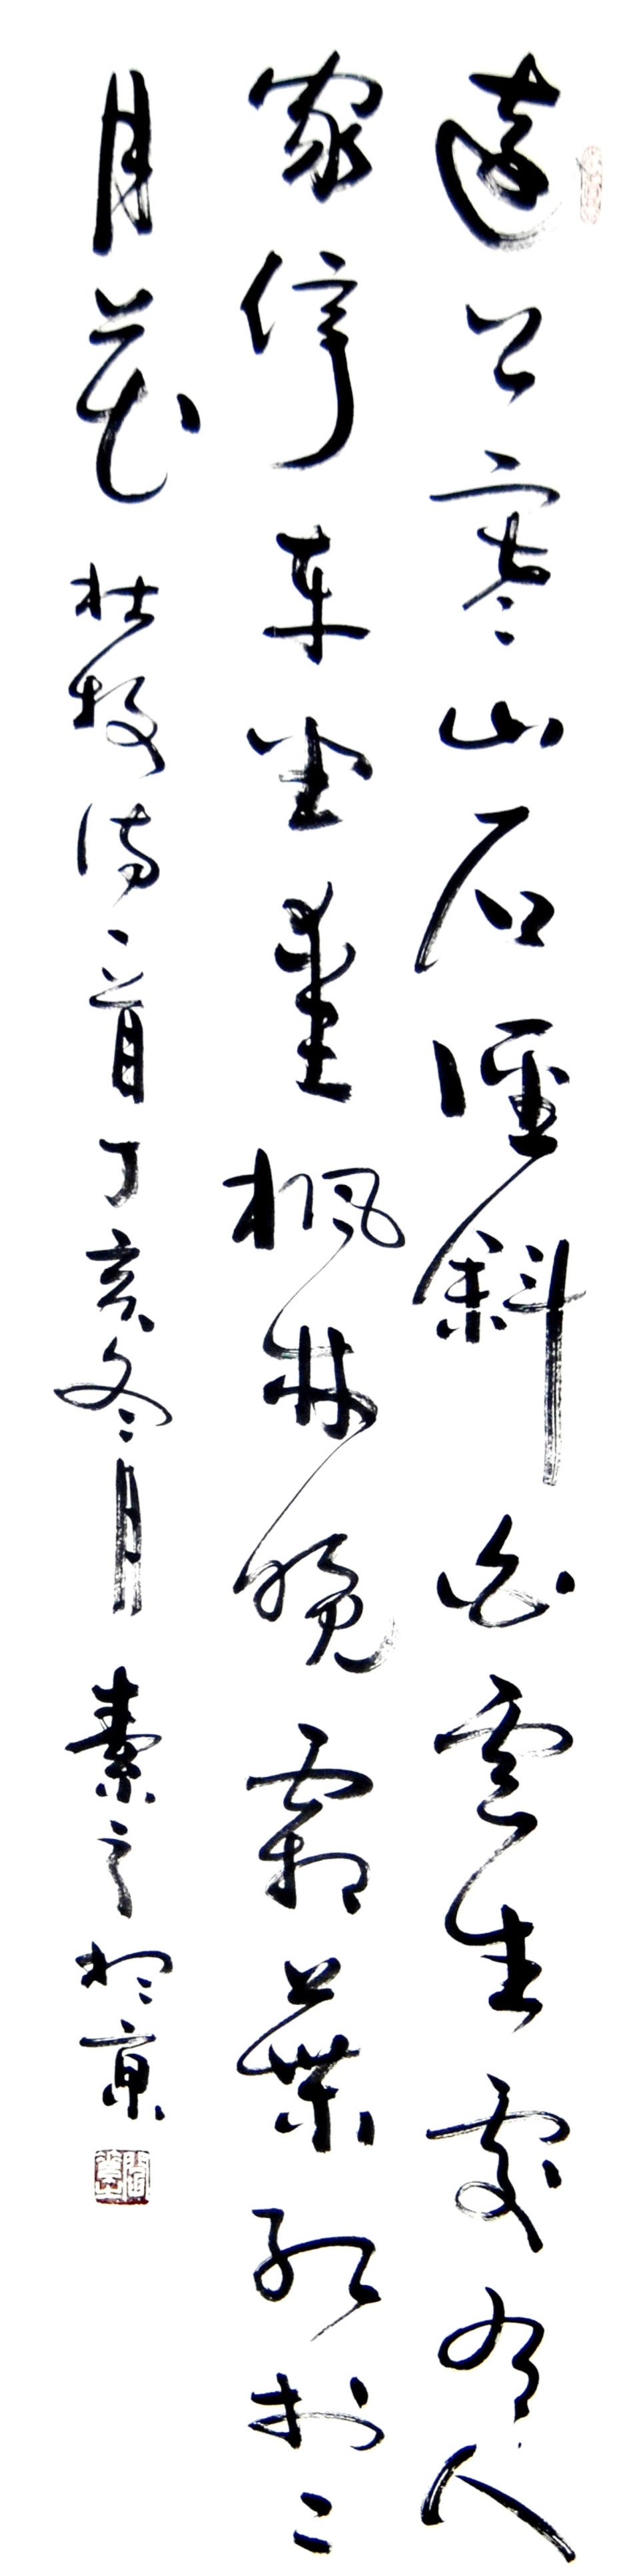 遠上寒山石徑斜白雲生處有人
家停車坐愛楓林晚霜葉紅於二
月花 杜牧詩一首 丁亥冬月 素 於京